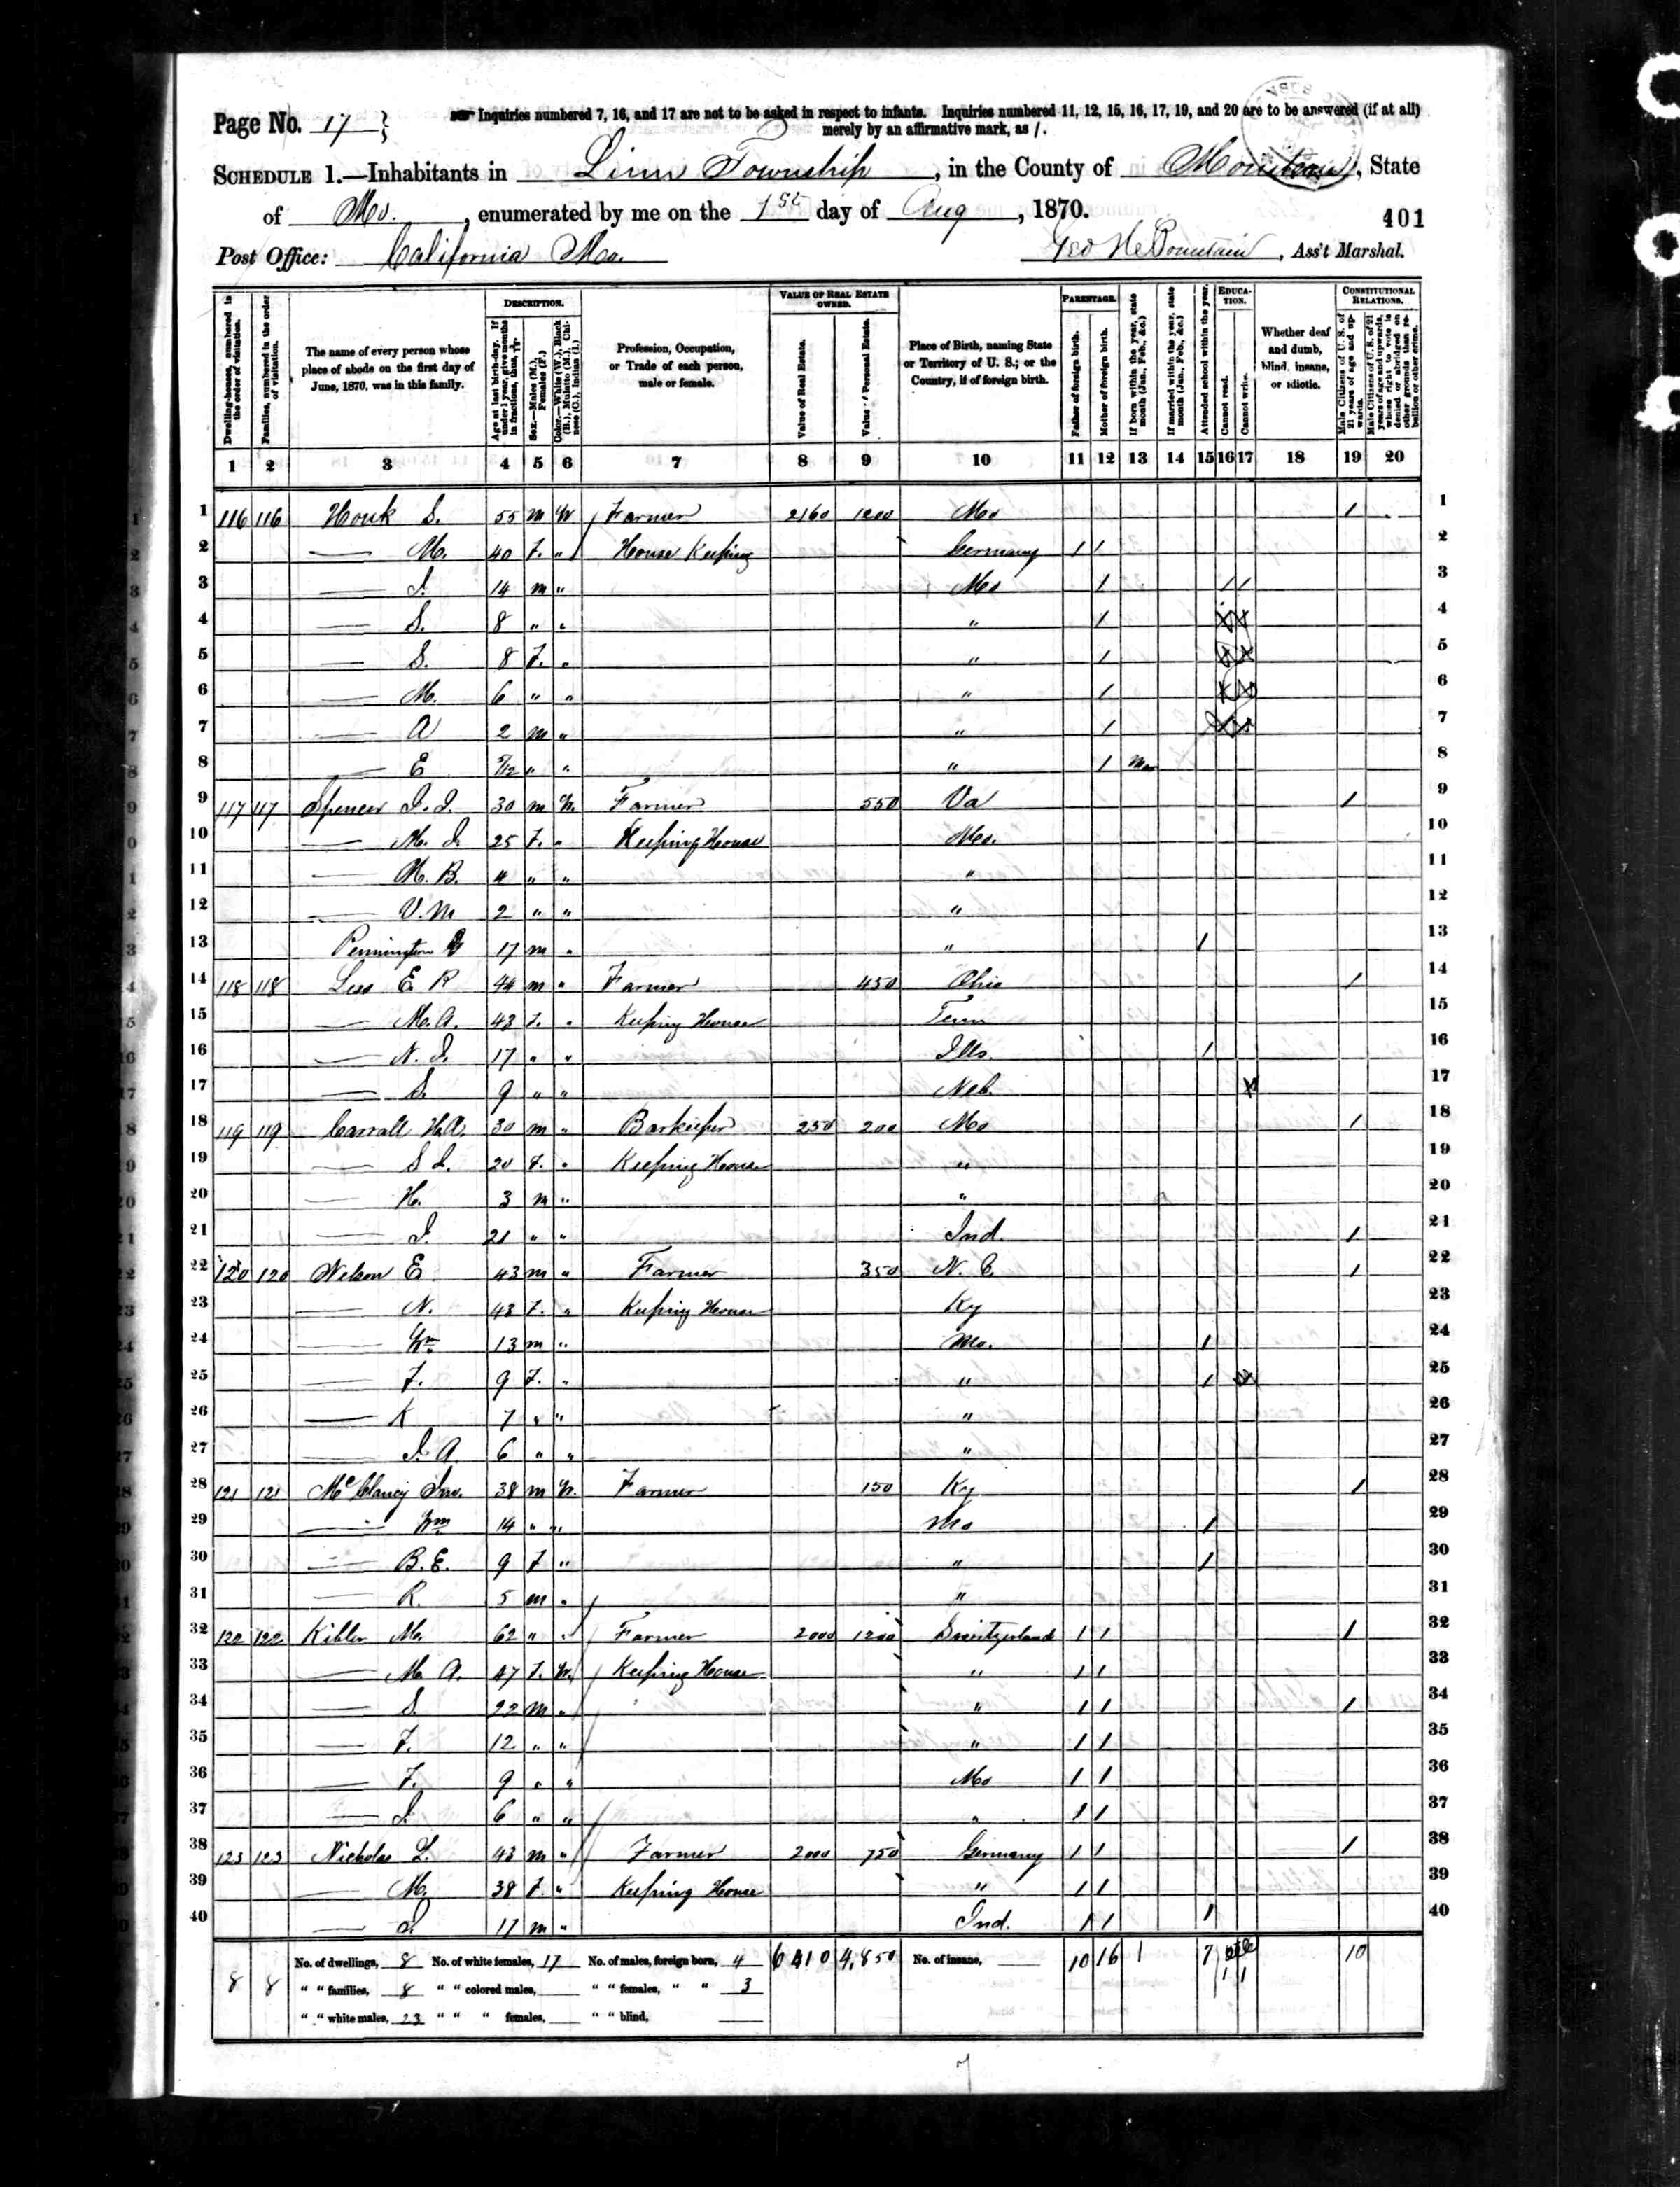 Page No. 17 }
Inquiries numbered 7, 16, and 17 are not to be asked in respect to infants. Inquiries numbered 11, 12, 15, 16, 17, 19, and 20 are to be answered (if at all)
merely by an affirmative mark, as /.
SCHEDULE 1.—Inhabitants in Linn Township, in the County of Moniteau, State
of Mo., enumerated by me on the 1st day of Aug, 1870.
401
Post Office: California Mo.
Geo H, Ass't Marshal.
Dwelling-houses, numbered in the order of visitation.
Families, numbered in the order of visitation.
The name of every person whose place of abode on the first day of June, 1870, was in this family.
DESCRIPTION.
Age at last birth-day. If under 1 year, give months in fractions, thus,
Sex.—Males (M.), Females (F.)
Color.—White (W.), Black (B.), Mulatto (M.), Chinese (C.), Indian (I.)
Profession, Occupation, or Trade of each person, male or female.
VALUE OF REAL ESTATE OWNED.
Value of Real Estate.
Value of Personal Estate.
Place of Birth, naming State or Territory of U. S.; or the Country, if of foreign birth.
PARENTAGE.
Father of foreign birth.
Mother of foreign birth.
If born within the year, state month (Jan., Feb., &c.)
If married within the year, state month (Jan., Feb., &c.)
Attended school within the year.
EDUCATION.
Cannot read.
Cannot write.
Whether deaf and dumb, blind, insane, or idiotic.
CONSTITUTIONAL RELATIONS.
Male Citizens of U. S. of 21 years of age and upwards.
Male Citizens of U. S. of 21 years of age and upwards, whose right to vote is denied or abridged on other grounds than rebellion or other crime.
1 2 3 4 5 6 7 8 9 10 11 12 13 14 15 16 17 18 19 20
1 116 116 Houk S. 55 m W Farmer 2160 1200 Mo / 1
2 — M. 40 F. " House Keeping Germany / / 2
3 — J. 14 m " Mo / / / 3
4 — S. 8 " " " / 4
5 — S. 8 F. " " / 5
6 — M. 6 " " " / 6
7 — A 2 m " " / 7
8 — E " " " / Mar 8
9 117 117 Spencer J. J. 30 m W. Farmer 550 Va / 9
10 — M. J. 25 F. " Keeping House Mo. 10
11 — M. B. 4 " " " 11
12 — V. M 2 " " " 12
13 Pennington 17 m " " / 13
14 118 118 Lee E. R 44 m " Farmer 450 Ohio / 14
15 — M. A. 43 F. " Keeping House Tenn 15
16 — N. J. 17 " " Ills. / 16
17 — S. 9 " " Neb. 17
18 119 119 Carrall H. A. 30 m " Barkeeper 250 200 Mo / 18
19 — S J. 20 F. " Keeping House " 19
20 — H. 3 m " " 20
21 — J. 21 " " Ind. / 21
22 120 120 Nelson E 43 m " Farmer 350 N. C / 22
23 — N. 43 F. " Keeping House Ky 23
24 — Wm 13 m " Mo. / 24
25 — F. 9 F. " " / 25
26 — K 7 " " " 26
27 — J. A. 6 " " " 27
28 121 121 McClancy Jno. 38 m W. Farmer 150 Ky / 28
29 — Wm 14 " " Mo / 29
30 — B. E. 9 F " " / 30
31 — R. 5 m " " 31
32 122 122 Kibler M. 62 " " Farmer 2000 1200 Switzerland / / / 32
33 — M. A. 47 F. W. Keeping House " / / 33
34 — S. 22 m " " / / / 34
35 — F. 12 " " " / / 35
36 — F. 9 " " Mo / / 36
37 — J. 6 " " " / / 37
38 123 123 Nicholas L. 43 m " Farmer 2000 750 Germany / / / 38
39 — M. 38 F. " Keeping House " / / 39
40 — J 17 m " Ind. / / / 40
8 8 No. of dwellings, 8 No. of white females, 17 No. of males, foreign born, 4 6410 4,850 No. of insane, 10 16 1 7 10
" " families, 8 " " colored males, " " females, " " 3 1 1
" " white males, 23 " " " females, " " blind,